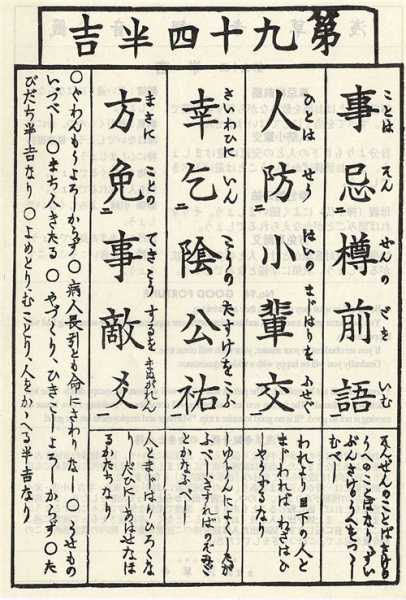 第九十四半吉
ことは そん ぜんの ごを いむ
事忌二樽前語一
そんぜんのことばさけの
うへのことばなり、ずい
ぶんさけのうへをつゝし
むべし
ひとは せう はいの まじはりを ふせぐ
人防二小輩交一
われより目下の人と
まじわればわざはひ
しやうずるなり
さいわひに いん こうの たすけをこふ
幸乞二陰公祐一
しゆじんによくしたが
ふべし、さすればのぞみご
とかなふべし
まさに ことの てきこう するを まぬがれん
方免二事敵爻一
人とまじはりひろくな
りしだひにしあはせなほ
るかたちなり
○ぐわんもうよろしからず○病人長引とも命にさわりなし○うせもの
いづべし○まち人きたる○やづくり、ひきこしよろしからず○た
びだち半吉なり○よめとり、むことり、人をかゝへる半吉なり